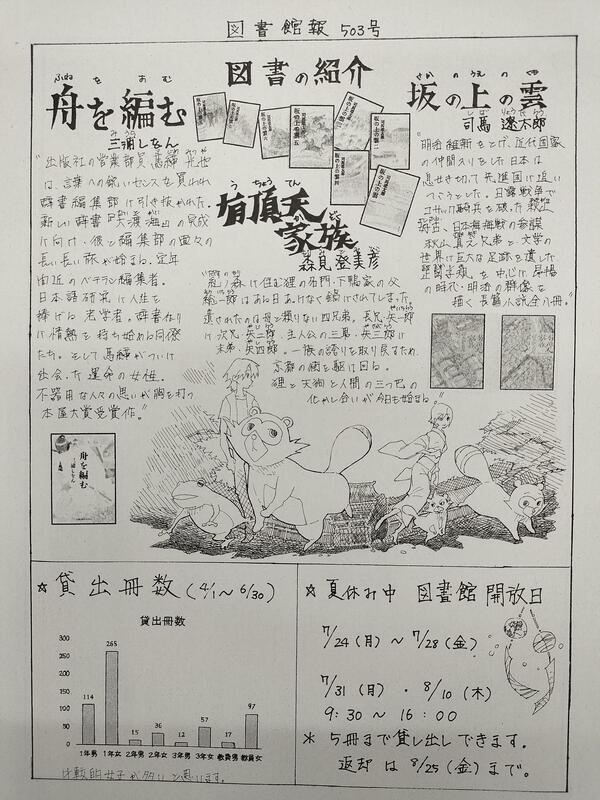 図書館報 503号
図書の紹介
ふね を あ む
舟を編む
三浦しをん
みうら
"出版社の営業部員・馬締光也
は、言葉への鋭いセンスを買われ
辞書編集部に引き抜かれた。
新しい辞書『大渡海』の完成
に向け、彼と編集部の面々の
長い長い旅が始まる。定年
間近のベテラン編集者。
日本語研究に人生を
捧げる老学者。辞書作り
に情熱を持ち始める同僚
たち。そして馬締がついに
出会った運命の女性。
不器用な人々の思いが胸を打つ
本屋大賞受賞作。"
舟を編む
三浦しをん
う ちょう てん
有頂天
か ぞく
家族
森見登美彦
"糺ノ森に住む狸の名門・下鴨家の父
総一郎はある日あけなく鍋にされてしまった。
遺されたのは母と頼りない四兄弟。長兄・矢一郎
に次兄・矢二郎、主人公の三男・矢三郎に
末弟・矢四郎。一族の誇りを取り戻すため、
京都の街を駆け回る。
狸と天狗と人間の三つ巴の
化かし合いが今日も始まる。"
さか の うえ の くも
坂の上の雲
し ば りょうたろう
司馬 遼太郎
"明治維新をとげ、近代国家
の仲間入りをした日本は
息せき切って先進国に追い
つこうとした。日露戦争で
コサック騎兵を破った秋山
好古、日本海海戦の参謀
秋山真之兄弟と文学の
世界に巨大な足跡を遺した
正岡子規を中心に、昂揚
の時代・明治の群像を
描く長篇小説全八冊。"
☆ 貸出冊数 (4/1〜6/30)
貸出冊数
300
250
200
150
100
50
0
114 265 15 36 12 57 17 97
1年男 1年女 2年男 2年女 3年男 3年女 教員男 教員女
比較的女子が多いと思います。
☆ 夏休み中 図書館 開放日
7/24 (月) 〜 7/28 (金)
7/31 (月) ・ 8/10 (木)
9:30 〜 16:00
* 5冊まで貸し出しできます。
返却は 8/25 (金) まで。